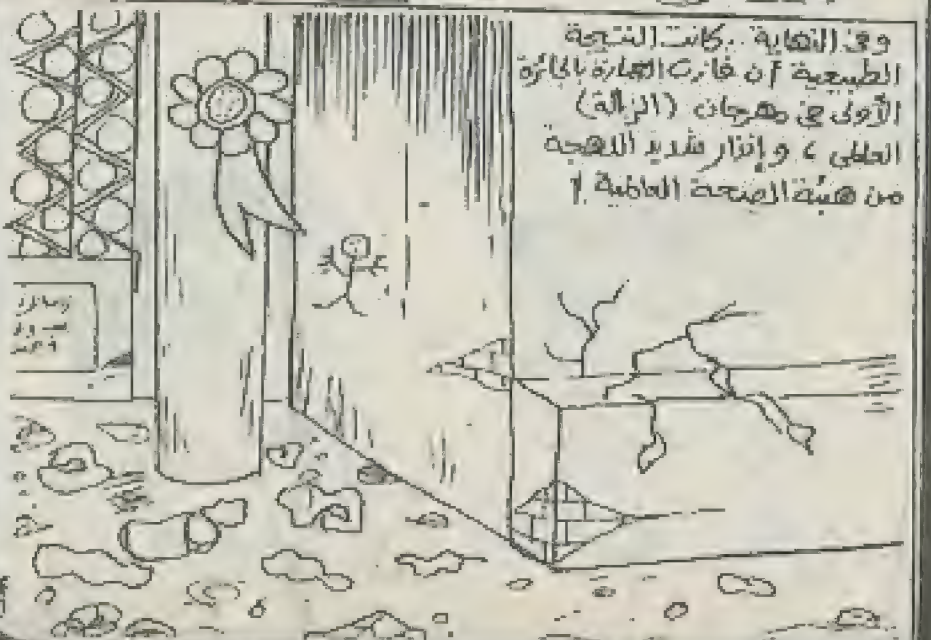 وفى النهاية .. كانت النتيجة
الطبيعية أن فازت العمارة بالجائزة
الأولى فى مهرجان (الزبالة)
العالمى ، وإنذار شديد اللهجة
من هيئة الصحة العالمية !